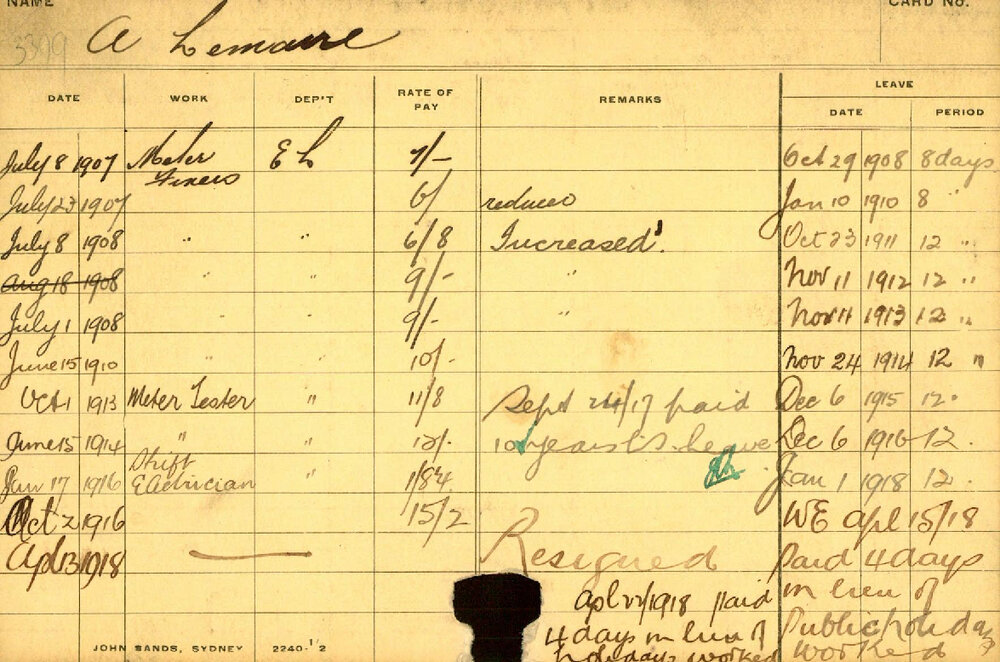 NAME CARD No.
3399 A Lemaire
DATE WORK DEP'T RATE OF PAY REMARKS LEAVE
DATE PERIOD
July 8 1907 Meter Fixers E L 7/- Oct 29 1908 8 days
July 23 1907 6/ reduced Jan 10 1910 8 "
July 8 1908 " " 6/8 Increased Oct 23 1911 12 "
Aug 18 1908 " " 9/- " Nov 11 1912 12 "
July 1 1908 " " 9/- Nov 11 1913 12 "
June 15 1910 " " 10/- Nov 24 1914 12 "
Oct 1 1913 Meter Tester " 11/8 Sept 24/17 paid Dec 6 1915 12
June 15 1914 " " 12/- 10 years L.S. leave Dec 6 1916 12
Jan 17 1916 Shift Electrician " Jan 1 1918 12
Oct 2 1916 15/2 WE Apl 15/18
Apl 13 1918 Resigned Paid 4 days
in lieu of
Public holiday
worked
Apl 22/1918 paid
4 days in lieu of
holidays worked
JOHN SANDS, SYDNEY 2240-12